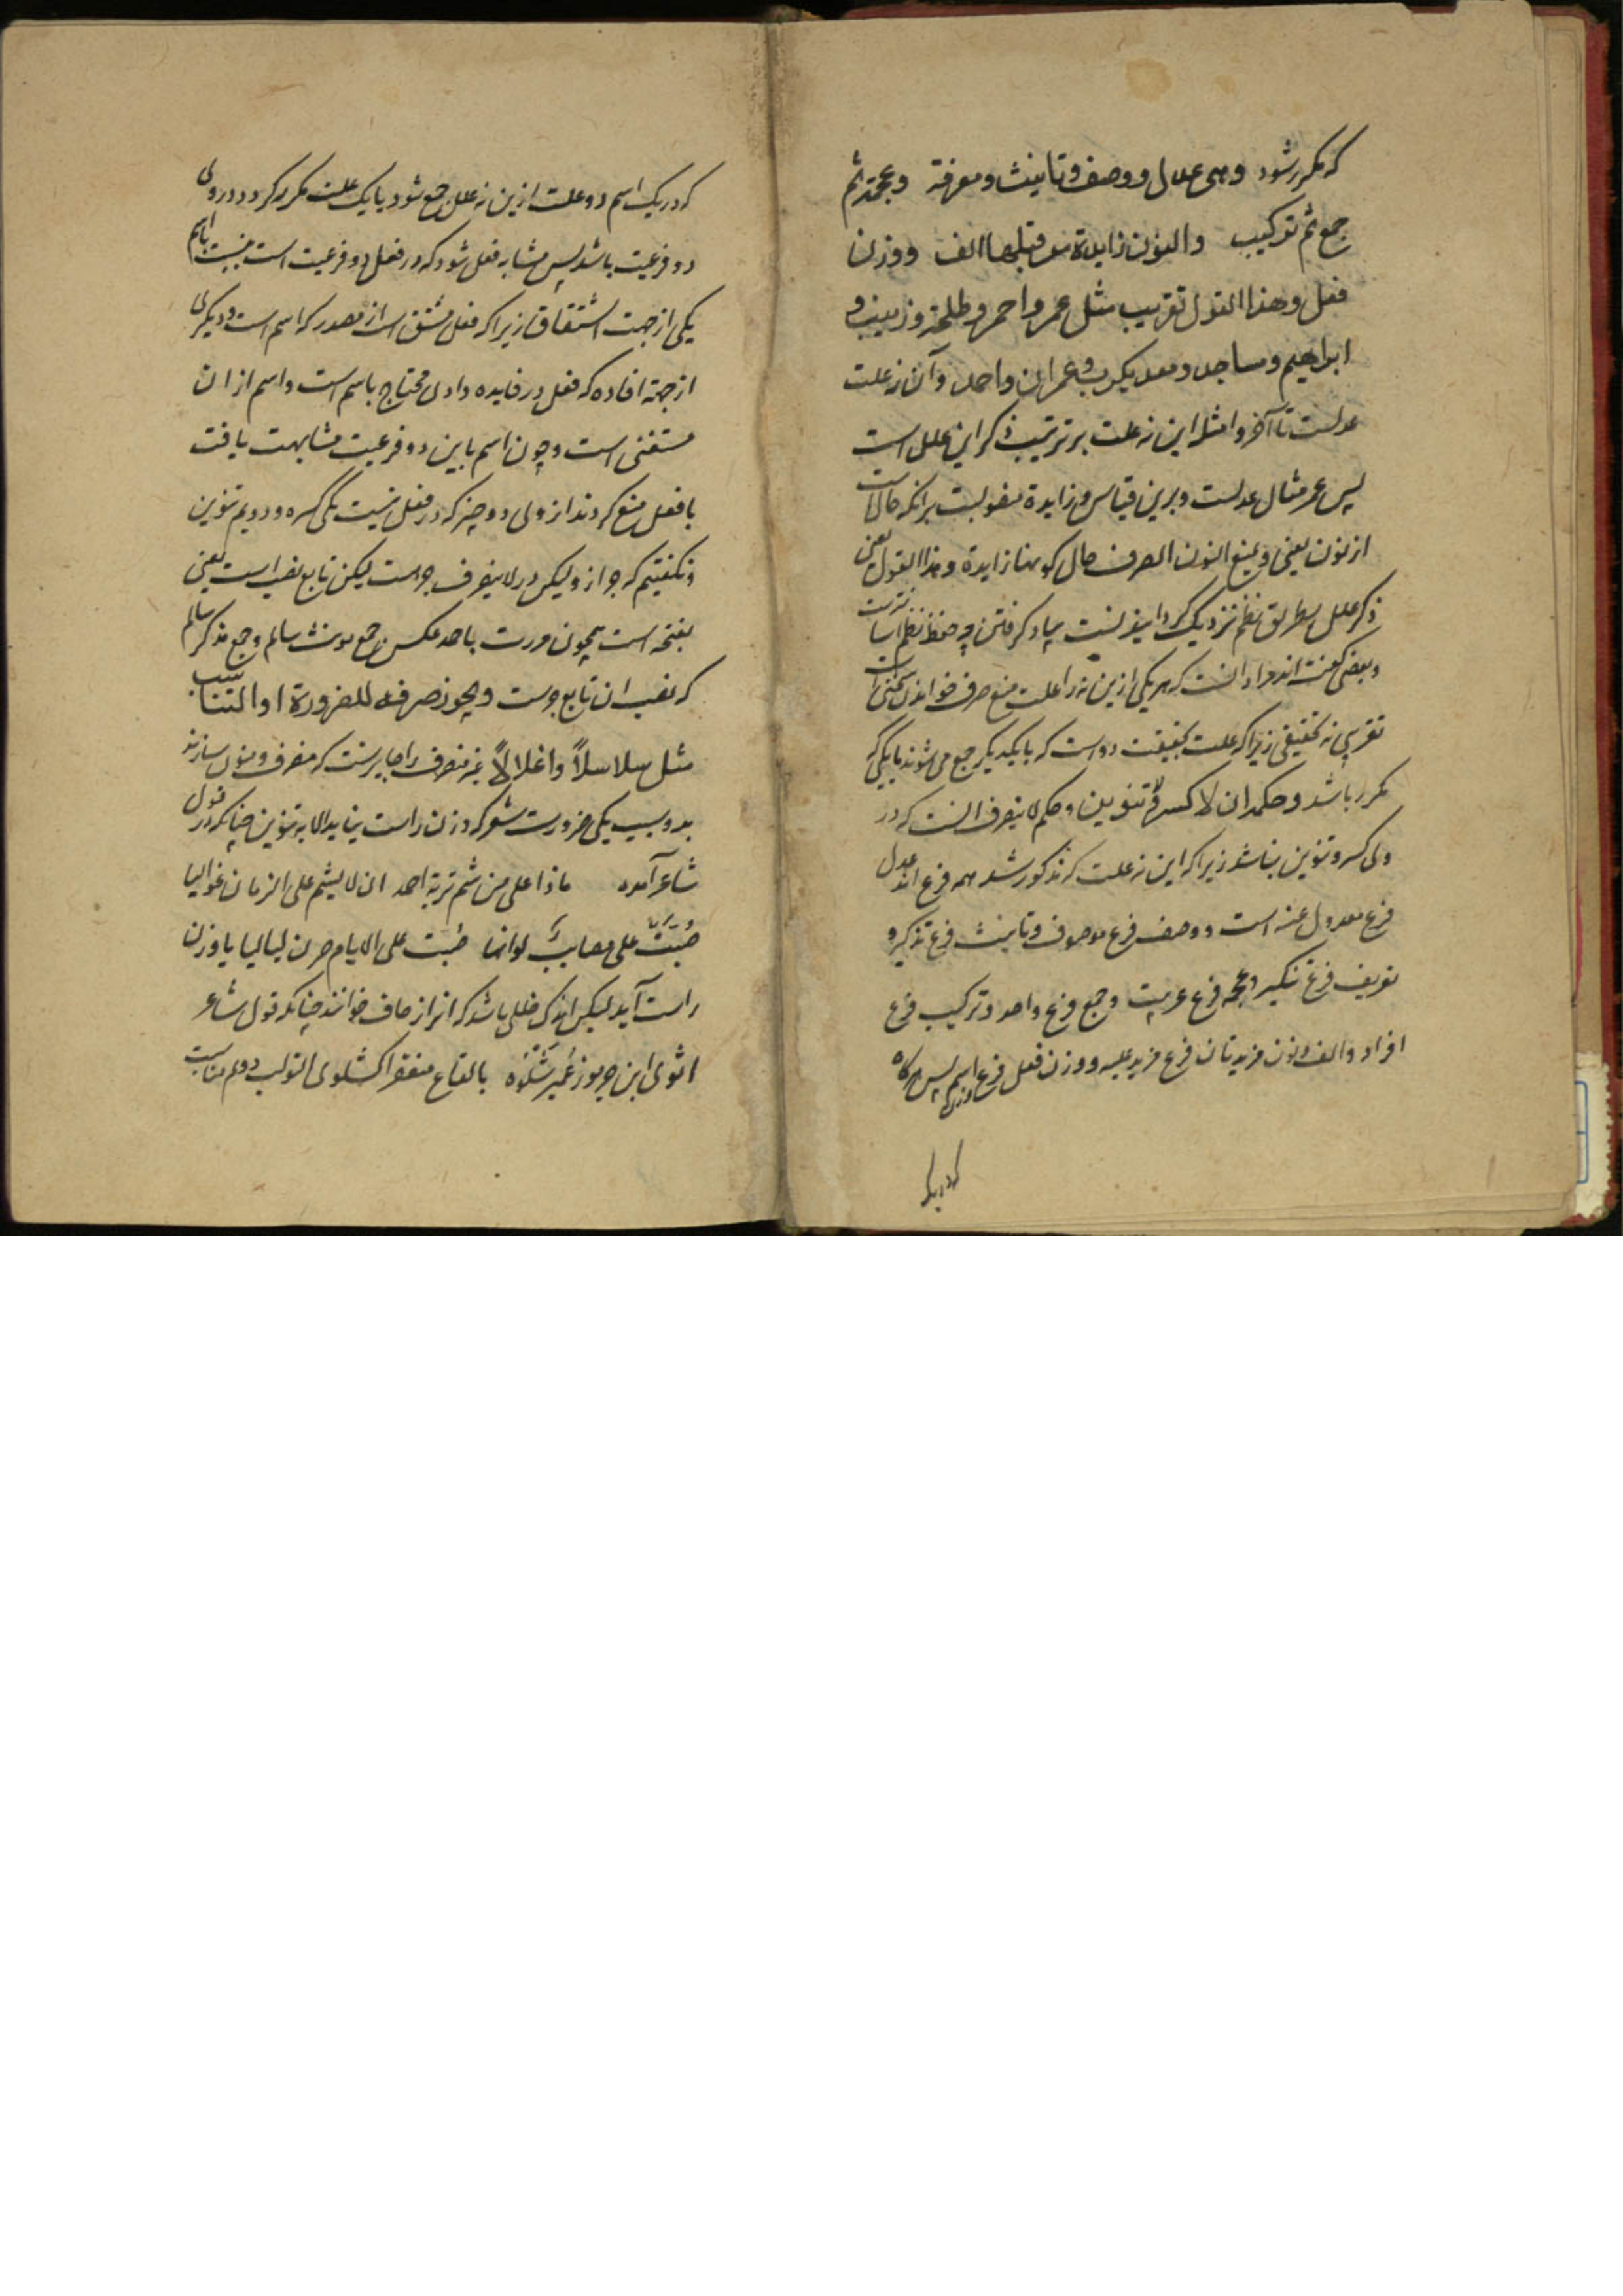 که مکرر شود وهی عدل ووصف وتانیث ومعرفة وعجمة ثم
جمع ثم ترکیب والنون زایدة من قبلها الف ووزن
فعل وهذا القول تقریب مثل عمر واحمر وطلحة وزینب و
ابراهیم ومساجد ومعدیکرب وعمران واحمد وآن نه علت
عدلست تا آخر وامثله این نه علت بر ترتیب ذکر این علل است
پس عمر مثال عدلست وبرین قیاس وزایدة منصوبست بر انکه حال است
از نون یعنی ویمنع النون الصرف حال کونها زایدة وهذا القول یعنی
ذکر علل بطریق نظم نزدیک گرداننده است بیاد گرفتن چه حفظ نظم اسانترست
وبعضی گفته اند مراد انست که هر یکی ازین نه را علت منع صرف خواندن سخنی است
تقریبی نه تحقیقی زیرا که علت بحقیقت دو است که بایکدیگر جمع می شوند یا یکی که
مکرر باشد وحکمه ان لا کسرة ولا تنوین وحکم لا ینصرف انست که در
ولی کسر وتنوین نباشد زیرا که این نه علت که مذکور شد همه فرع اند عدل
فرع معدول عنه است ووصف فرع موصوف وتانیث فرع تذکیر و
تعریف فرع تنکیر وعجمه فرع عربیت وجمع فرع واحد وترکیب فرع
افراد والف ونون مزیدتان فرع مزید علیه ووزن فعل فرع وزن اسم پس هرگاه
که در یک
که در یک اسم دو علت ازین نه علل جمع شود یا یک علت مکرر گردد در ولی
دو فرعیت باشد پس مشابه فعل شود که در فعل دو فرعیت است بنسبت باسم
یکی از جهت اشتقاق زیرا که فعل مشتق است از مصدر که اسم است ودیگری
از جهة افاده که فعل در فایده دادن محتاج باسم است واسم از ان
مستغنی است وچون اسم باین دو فرعیت مشابهت یافت
با فعل منع کردند از ولی دو چیز که در فعل نیست یکی کسره ودویم تنوین
ونگفتیم که جر از ولیکن در لا ینصرف جر است لیکن تابع نصب است یعنی
بفتحه است همچون مررت باحمد عکس جمع مونث سالم وجمع مذکر سالم
که نصب ان تابع جرست ویجوز صرفه للضرورة او التناسب
مثل سلاسلاً واغلالاً غیر منصرف را جایزست که منصرف ومنون سازند
بدو سبب یکی ضرورت شعر که وزن راست نیاید الا به تنوین چنانکه در قول
شاعر آمده ماذا علی من شم تربة احمد ان لا یشم علی الزمان غوالیا
صُبَّتْ علی مصایبٌ لوانها صبت علی الایام صرن لیالیا یا وزن
راست آید لیکن اندک خللی باشد که انرا زحاف خوانند چنانکه قول شاعر